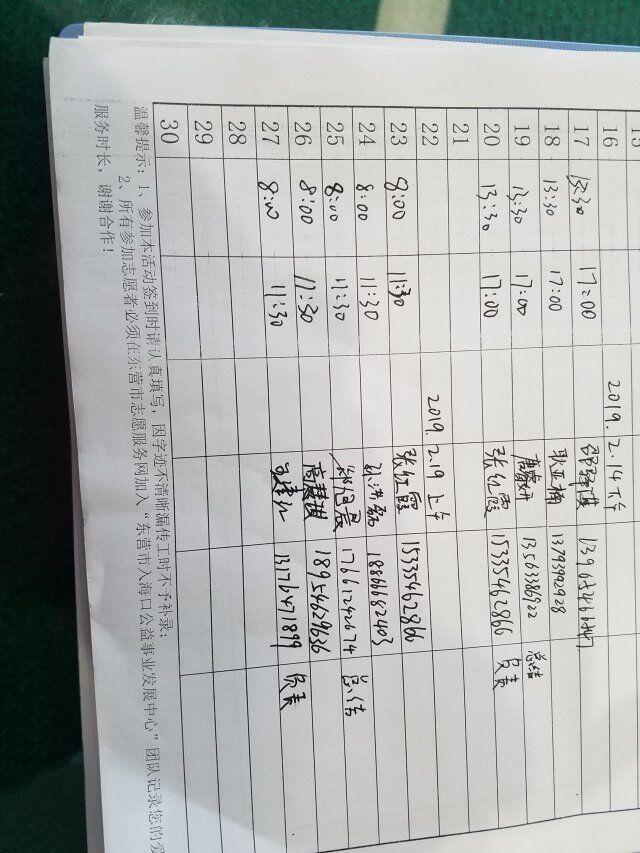 15
16 2019.2.14下午
17 13:30 17:00
18 13:30 17:00 耿亚楠 13793992928
19 13:30 17:00 13563386922 总结
20 13:30 17:00 张红霞 15335462866 负责
21
22 2019.2.19 上午
23 8:00 11:30 张红霞 15335462866
24 8:00 11:30 18866682403
25 8:00 11:30 17661242674 总结
26 8:00 11:30 高慧琪 18954629636
27 8:00 11:30 13176471899 负责
28
29
30
温馨提示：1、参加本活动签到时请认真填写，因字迹不清晰漏传工时不予补录；
2、所有参加志愿者必须在东营市志愿服务网加入“东营市入海口公益事业发展中心”团队记录您的爱
服务时长，谢谢合作！